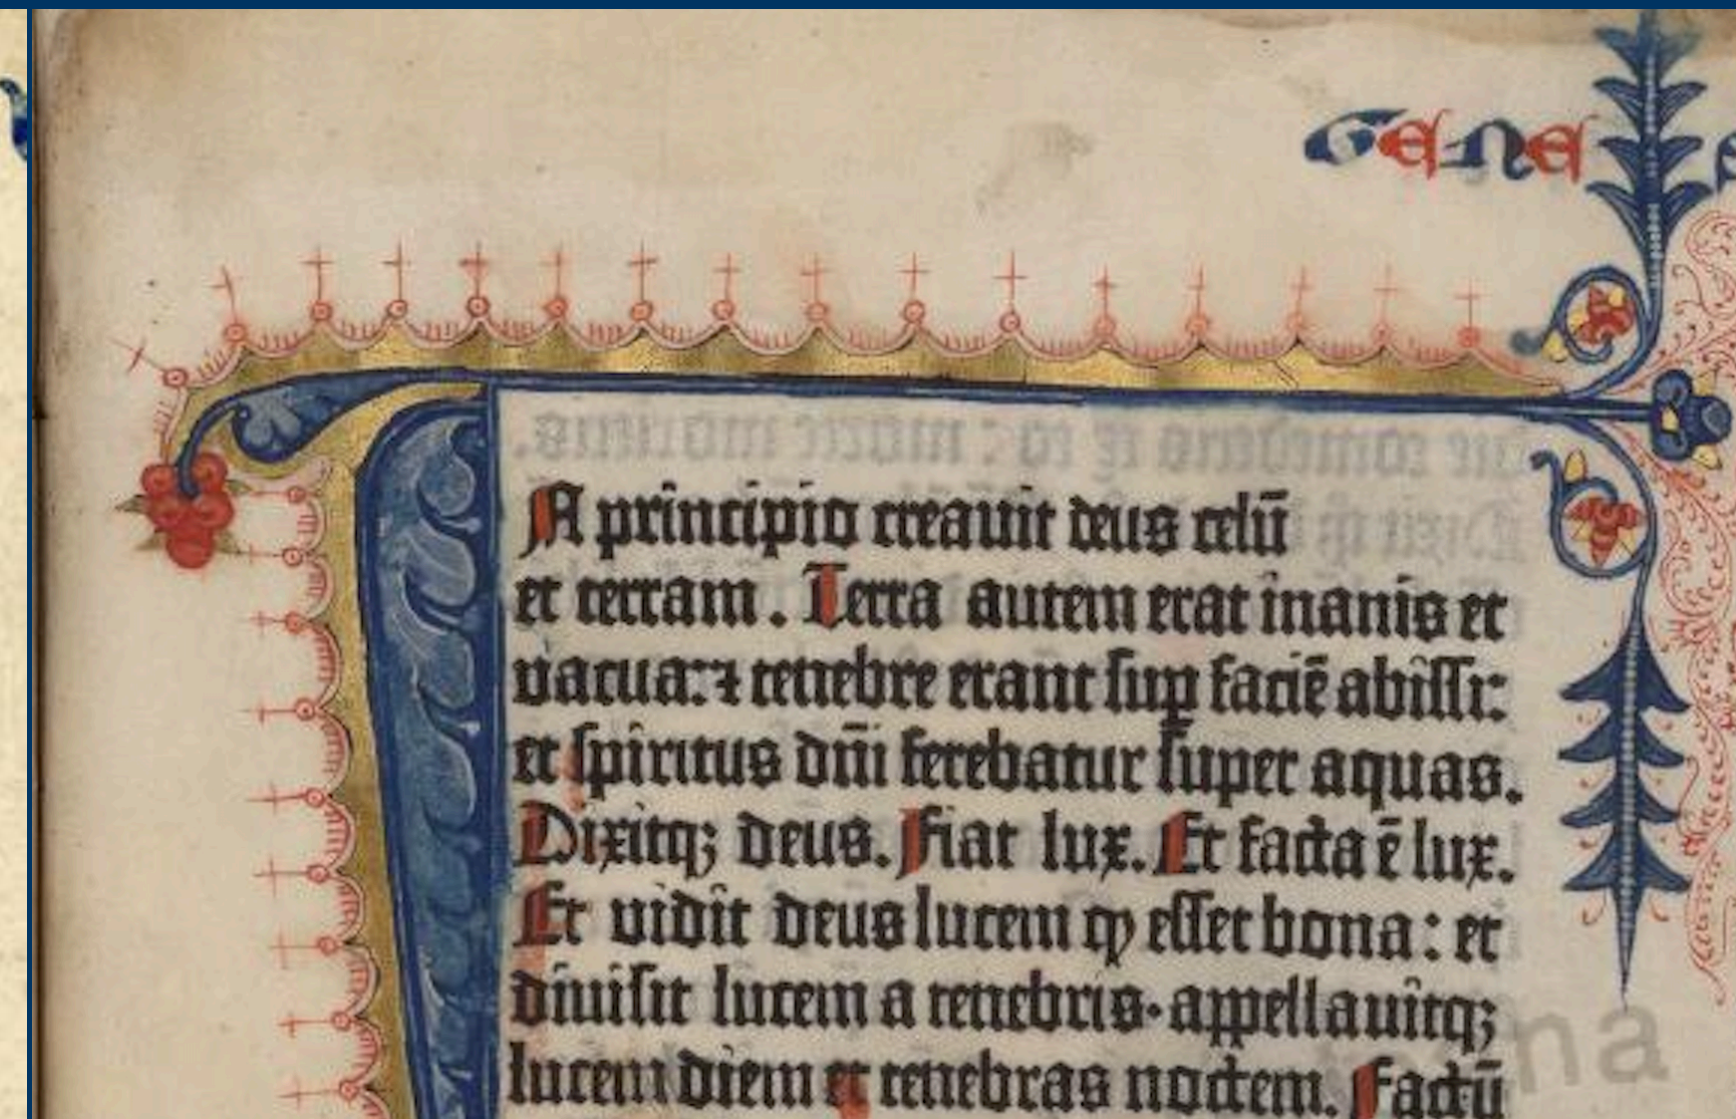 GENE
IN principio creauit deus celū
et terram. Terra autem erat inanis et
vacua: ⁊ tenebre erant ſuꝑ faciē abiſſi:
et ſpiritus dñi ferebatur ſuper aquas.
Dixitqꝫ deus. Fiat lux. Et facta ē lux.
Et vidit deus lucem ꝙ eſſet bona: et
diuiſit lucem a tenebris· appellauitqꝫ
lucem diem et tenebras noctem. Factū